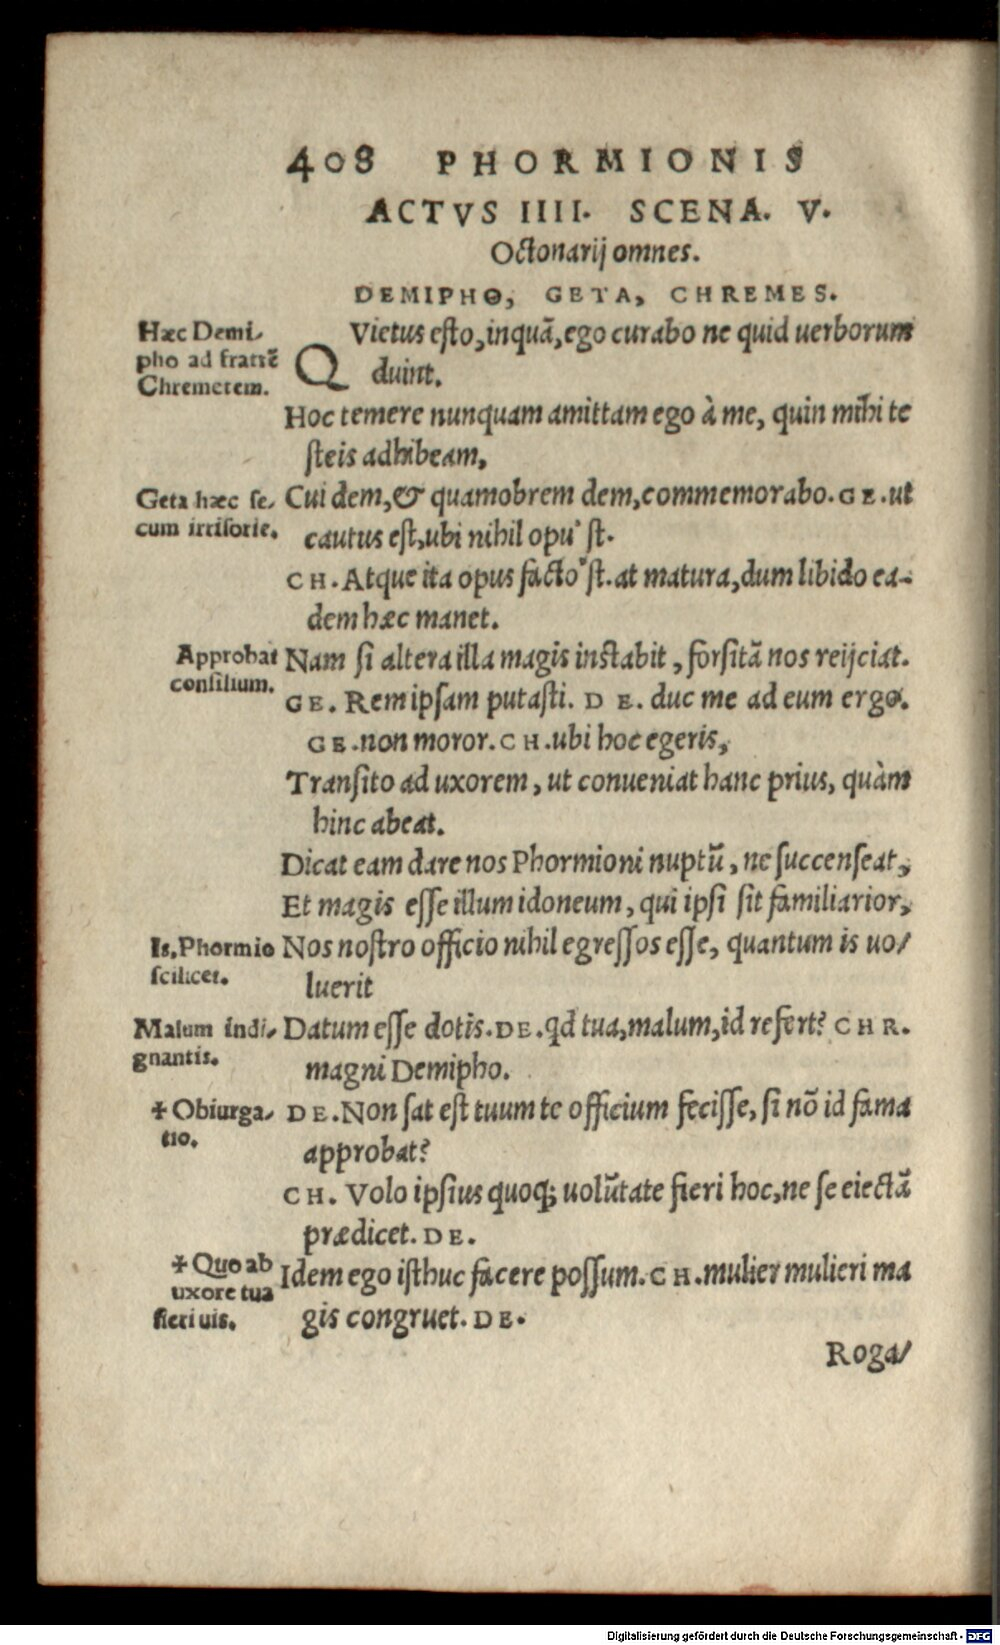 408 PHORMIONIS
ACTVS IIII. SCENA. V.
Octonarij omnes.
DEMIPHO, GETA, CHREMES.
Hæc Demi-
pho ad fratrẽ
Chremetem.
QVietus esto, inquã, ego curabo ne quid uerborum
duint.
Hoc temere nunquam amittam ego à me, quin mihi te
steis adhibeam,
Geta hæc se-
cum irrisorie.
Cui dem, & quamobrem dem, commemorabo. GE. ut
cautus est, ubi nihil opu' st.
CH. Atque ita opus facto'st. at matura, dum libido ea-
dem hæc manet.
Approbat
consilium.
Nam si altera illa magis instabit, forsitã nos reijciat.
GE. Rem ipsam putasti. DE. duc me ad eum ergo.
GE. non moror. CH. ubi hoc egeris,
Transito ad uxorem, ut conueniat hanc prius, quàm
hinc abeat.
Dicat eam dare nos Phormioni nuptũ, ne succenseat,
Et magis esse illum idoneum, qui ipsi sit familiarior,
Is. Phormio
scilicet.
Nos nostro officio nihil egressos esse, quantum is uo-
luerit
Malum indi-
gnantis.
Datum esse dotis. DE. qd tua, malum, id refert? CHR.
magni Demipho.
✝ Obiurga-
tio.
DE. Non sat est tuum te officium fecisse, si nõ id fama
approbat?
CH. Volo ipsius quoq; uolũtate fieri hoc, ne se eiectã
prædicet. DE.
✝ Quo ab
uxore tua
fieri uis.
Idem ego isthuc facere possum. CH. mulier mulieri ma
gis congruet. DE.
Roga-
Digitalisierung gefördert durch die Deutsche Forschungsgemeinschaft - DFG